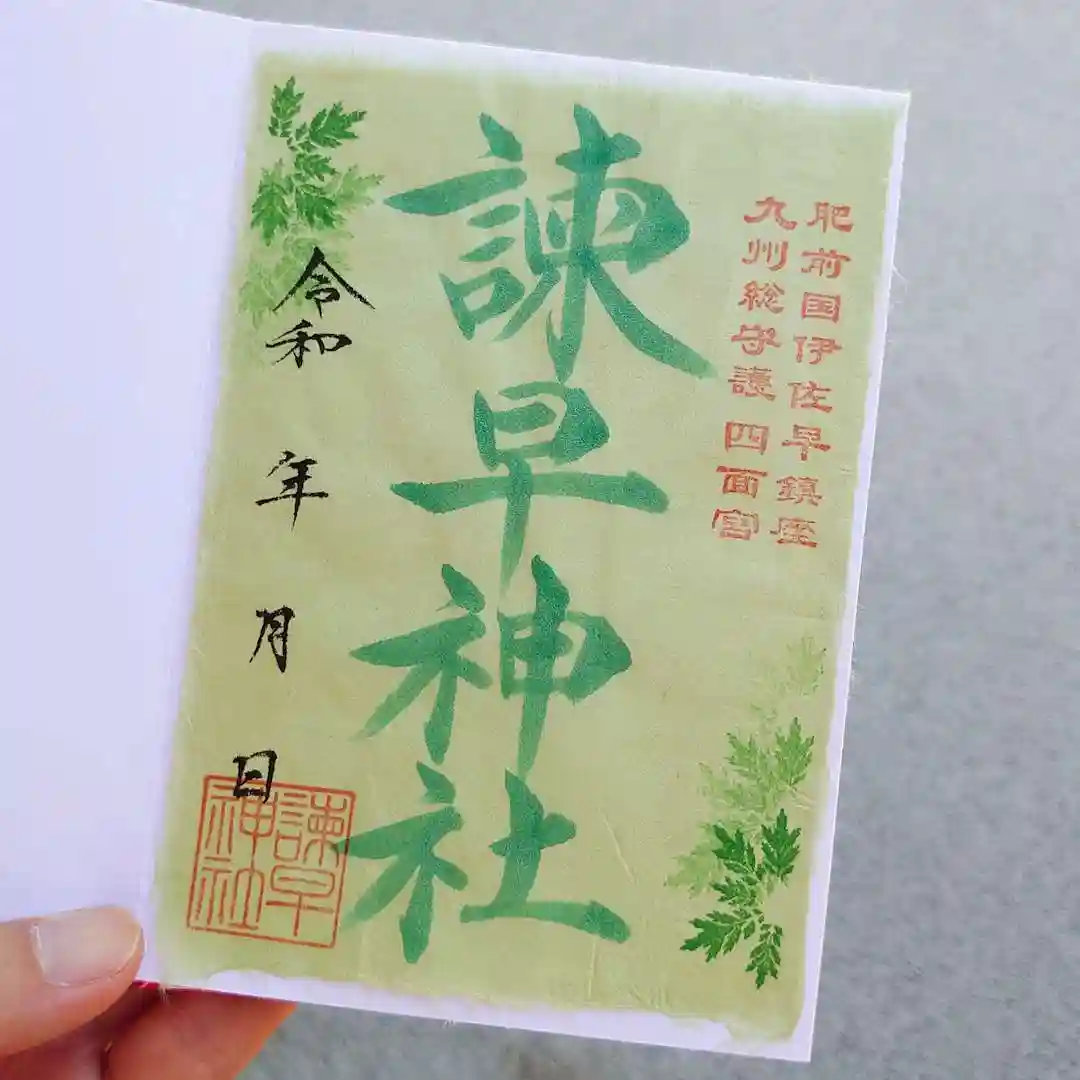 肥前国伊佐早鎮座
九州総守護四面宮
諫早神社
令和 年 月 日
諫早
神社